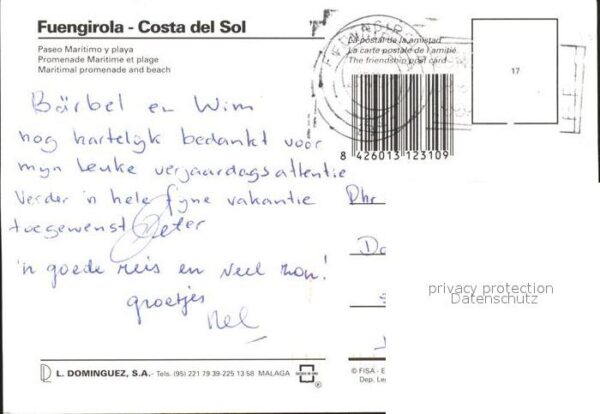 Fuengirola - Costa del Sol
Paseo Marítimo y playa
Promenade Maritime et plage
Maritimal promenade and beach
La postal de la amistad
La carte postale de l'amitié
The friendship post card
17
8 426013 123109
Bärbel en Wim
nog hartelijk bedankt voor
mijn leuke verjaardagsattentie
Verder 'n hele fijne vakantie
toegewenst Peter
'n goede reis en veel zon!
groetjes
Nel
Dhr
privacy protection
Datenschutz
L. DOMINGUEZ, S.A. - Tels. (95) 221 79 39-225 13 58 MALAGA
© FISA - E
Dep. Le